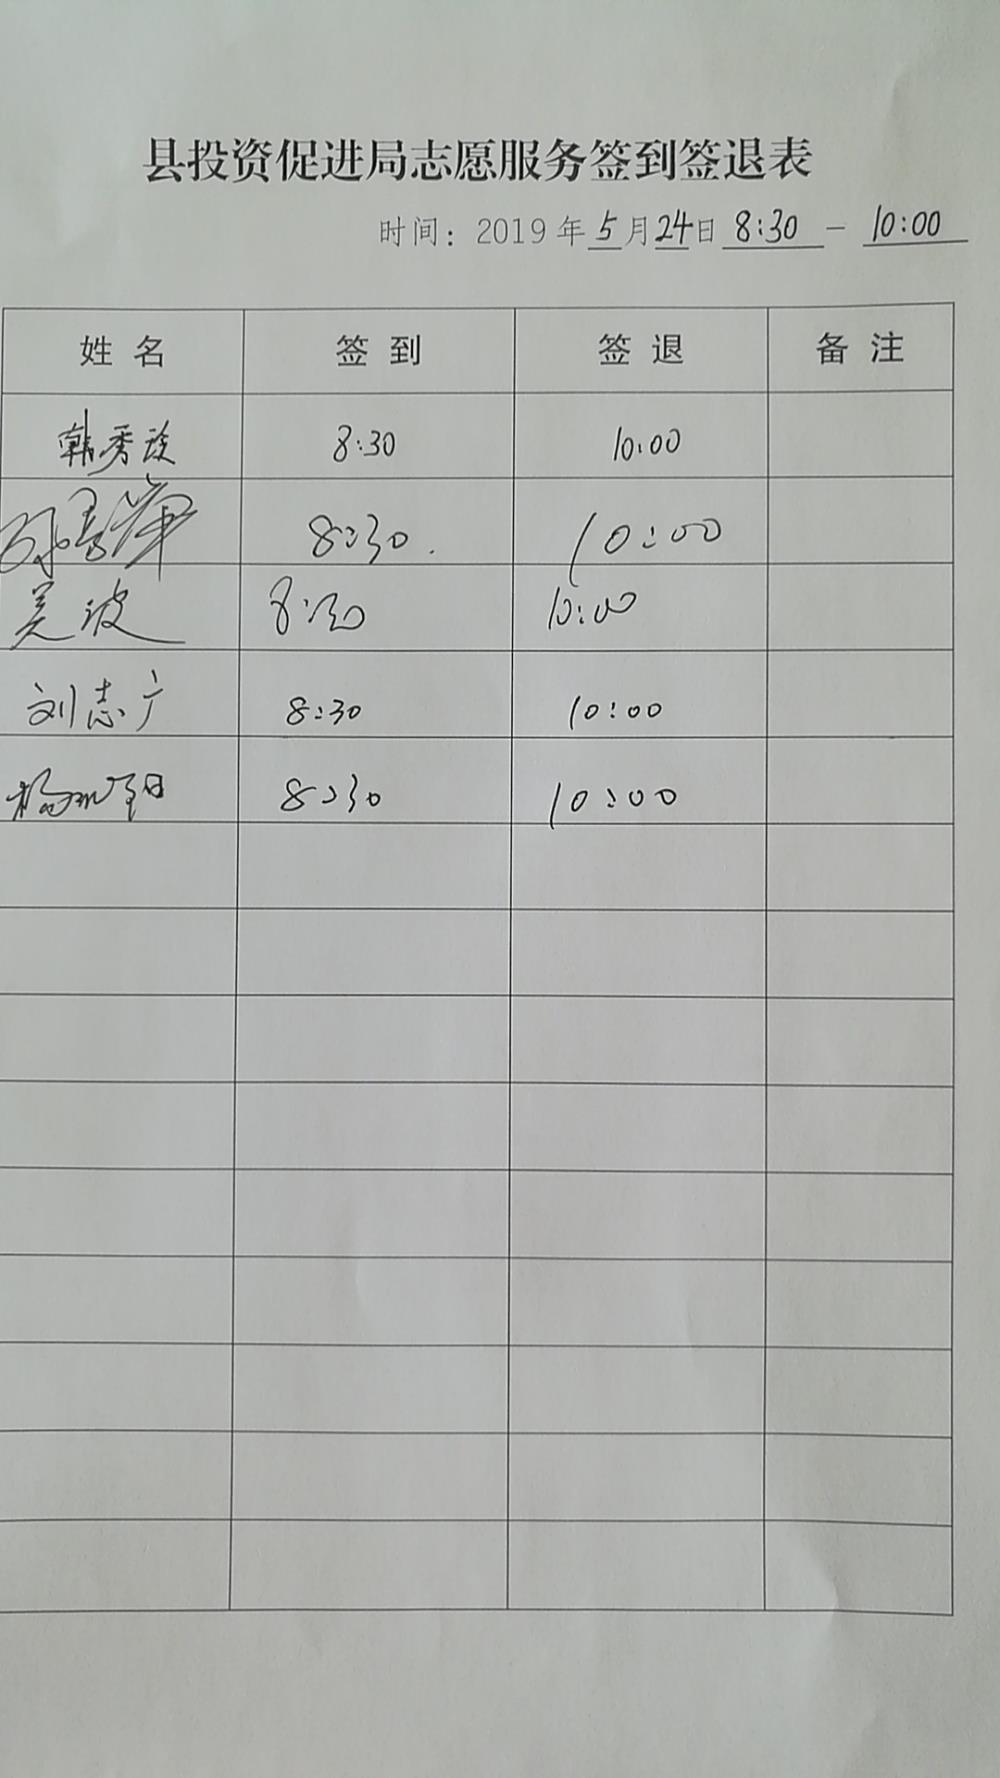 县投资促进局志愿服务签到签退表
时间：2019年5月24日 8:30 — 10:00
姓名 签到 签退 备注
韩秀 8:30 10:00
8:30. 10:00
吴波 8:30 10:00
刘志广 8:30 10:00
杨 8:30 10:00